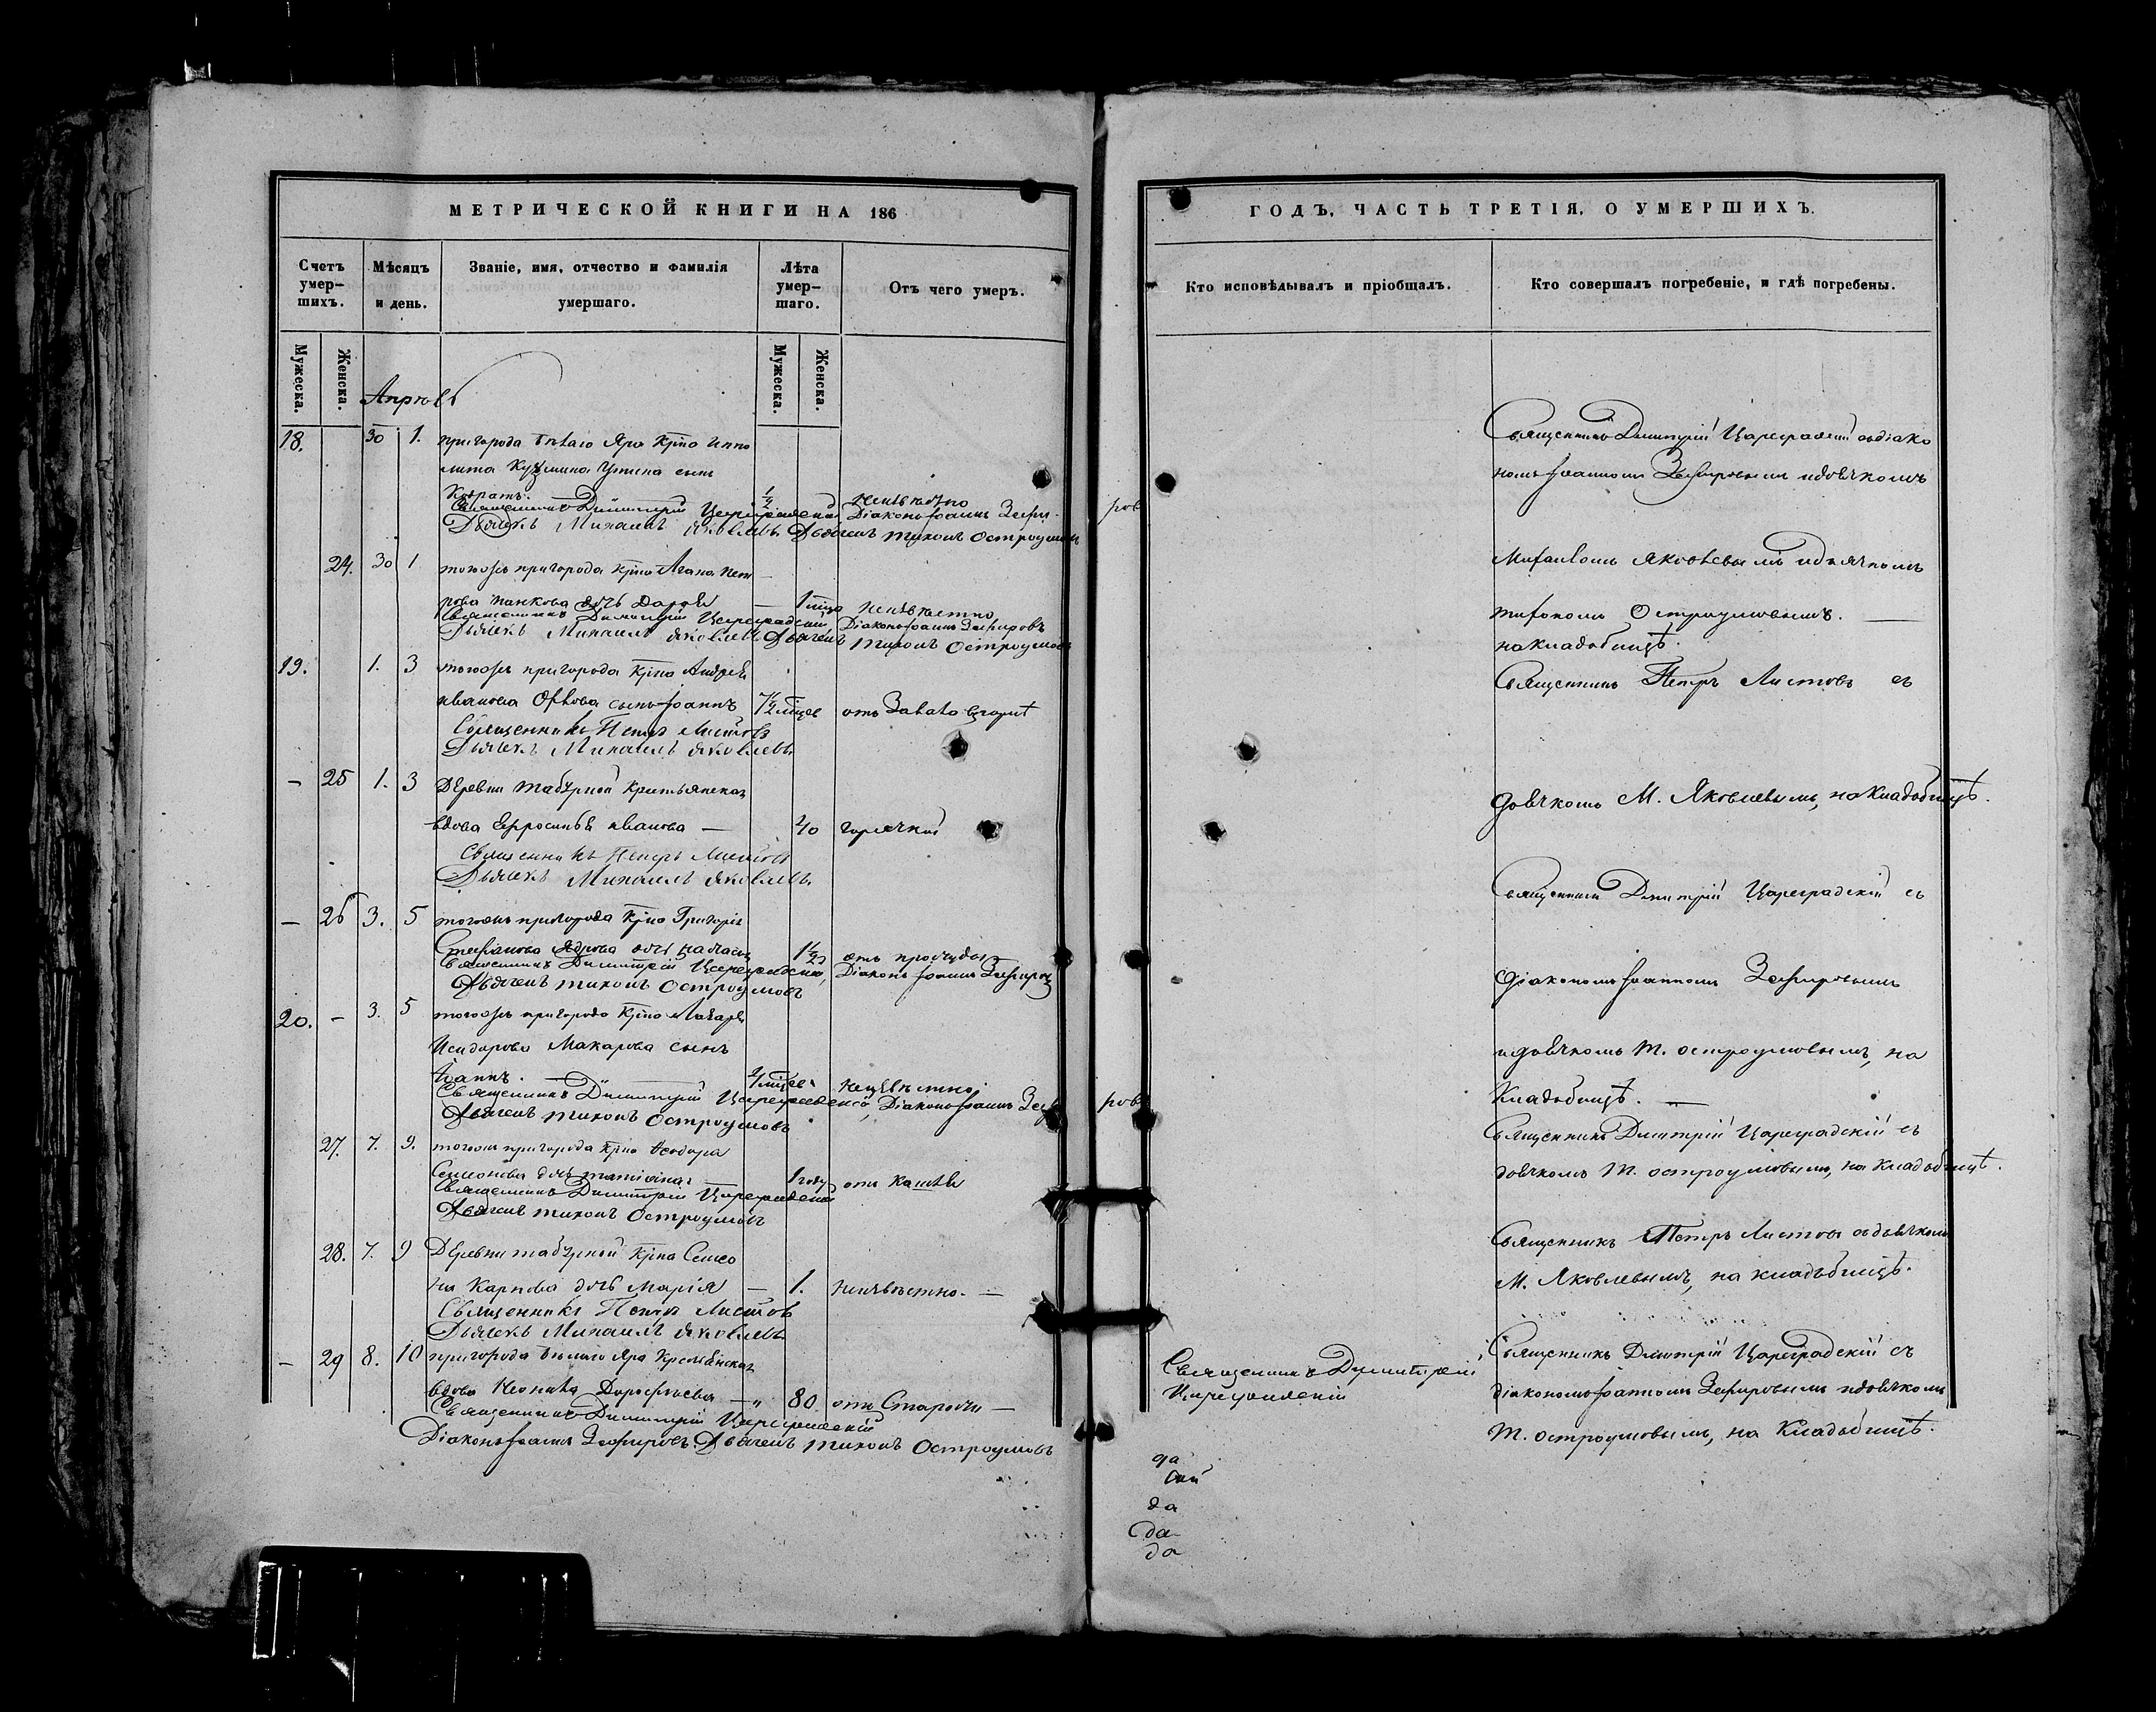 МЕТРИЧЕСКОЙ КНИГИ НА 186
Счетъ умер-шихъ.
Мѣсяцъ и день.
Званіе, имя, отчество и фамилія умершаго.
Лѣта умер-шаго.
Отъ чего умеръ.
Мужеска.
Женска.
Мужеска.
Женска.
Апрѣль
18. 30 1. пригорода Бѣлаго Яра Крⷭ҇на Иппо
лита Кузмина сынъ
Кодратъ. ½ неизвѣстно
Священникъ Димитрій Цареградскій Діаконъ Іоаннъ Зефи-ровъ
Дьячекъ Михаилъ Яковлевъ Дьячекъ Тихонъ Остроумовъ
24. 30 1 тогожъ пригорода Крⷭ҇на
рова дочь неизвѣстно
Священникъ Димитрій Цареградскій, Діаконъ Іоаннъ Зефировъ
Дьячекъ Михаилъ Яковлевъ Дьячекъ Тихонъ Остроумовъ
19. 1. 3 тогожъ пригорода Крⷭ҇на Андрея
Иванова Орлова сынъ Іоаннъ отъ
Священникъ Петръ Листовъ
Дьячекъ Михаилъ Яковлевъ
— 25 1. 3 Деревни крестьянская
вдова Ефросинья Иванова — 40 горячкой
Священникъ Петръ Листовъ
Дьячекъ Михаилъ Яковлевъ
— 26 3. 5 тогожъ пригорода Крⷭ҇на Григорія
Стефанова дочь 1½ отъ простуды
Священникъ Димитрій Цареградскій, Діаконъ Іоаннъ Зефировъ
Дьячекъ Тихонъ Остроумовъ
20. — 3. 5 тогожъ пригорода Крⷭ҇на Лазаря
Исидорова Макарова сынъ
Іоаннъ. неизвѣстно
Священникъ Димитрій Цареградскій, Діаконъ Іоаннъ Зефировъ
Дьячекъ Тихонъ Остроумовъ
27. 7. 9. тогожъ пригорода Крⷭ҇на Ѳеодора
Семенова дочь 1 году отъ кашля
Священникъ Димитрій Цареградскій
Дьячекъ Тихонъ Остроумовъ
28. 7. 9 Деревни Крⷭ҇на Семео
на Карпова дочь Марія — 1. неизвѣстно. —
Священникъ Петръ Листовъ
Дьячекъ Михаилъ Яковлевъ
— 29 8. 10 пригорода Бѣлаго Яра Крестьянская
вдова Неонила Дорофѣева — „ 80. отъ Старости —
Священникъ Димитрій Цареградскій
Діаконъ Іоаннъ Зефировъ Дьячекъ Тихонъ Остроумовъ
ГОДЪ, ЧАСТЬ ТРЕТІЯ, О УМЕРШИХЪ.
Кто исповѣдывалъ и пріобщалъ.
Кто совершалъ погребеніе, и гдѣ погребены.
Священникъ Димитрій Цареградскій съ діако
номъ Іоанномъ Зефировымъ и дьячкомъ
Михаиломъ Яковлевымъ и дьячкомъ
Тихономъ Остроумовымъ. —
на кладбищѣ.
Священникъ Петръ Листовъ съ
дьячкомъ М. Яковлевымъ, на кладбищѣ.
Священникъ Дмитрій Цареградскій съ
діакономъ Іоанномъ Зефировымъ
и дьячкомъ Т. Остроумовымъ, на
кладбищѣ. —
Священникъ Дмитрій Цареградскій съ
дьячкомъ Т. Остроумовымъ, на кладбищѣ.
Священникъ Петръ Листовъ съ дьячкомъ
М. Яковлевымъ, на кладбищѣ.
Священникъ Димитрій
Цареградскій
Священникъ Дмитрій Цареградскій съ
діакономъ Іоанномъ Зефировымъ и дьячкомъ
Т. Остроумовымъ, на кладбищѣ.
да
да
да